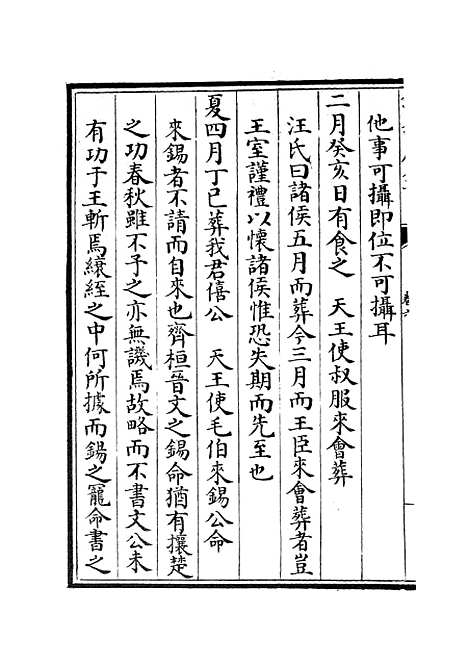 他事可攝即位不可攝耳
二月癸亥日有食之　天王使叔服來會葬
汪氏曰諸侯五月而葬今三月而王臣來會葬者豈
王室謹禮以懷諸侯惟恐失期而先至也
夏四月丁巳葬我君僖公　天王使毛伯來錫公命
來錫者不請而自來也齊桓晉文之錫命猶有攘楚
之功春秋雖不予之亦無譏焉故略而不書文公未
有功于王斬焉縗絰之中何所據而錫之寵命書之